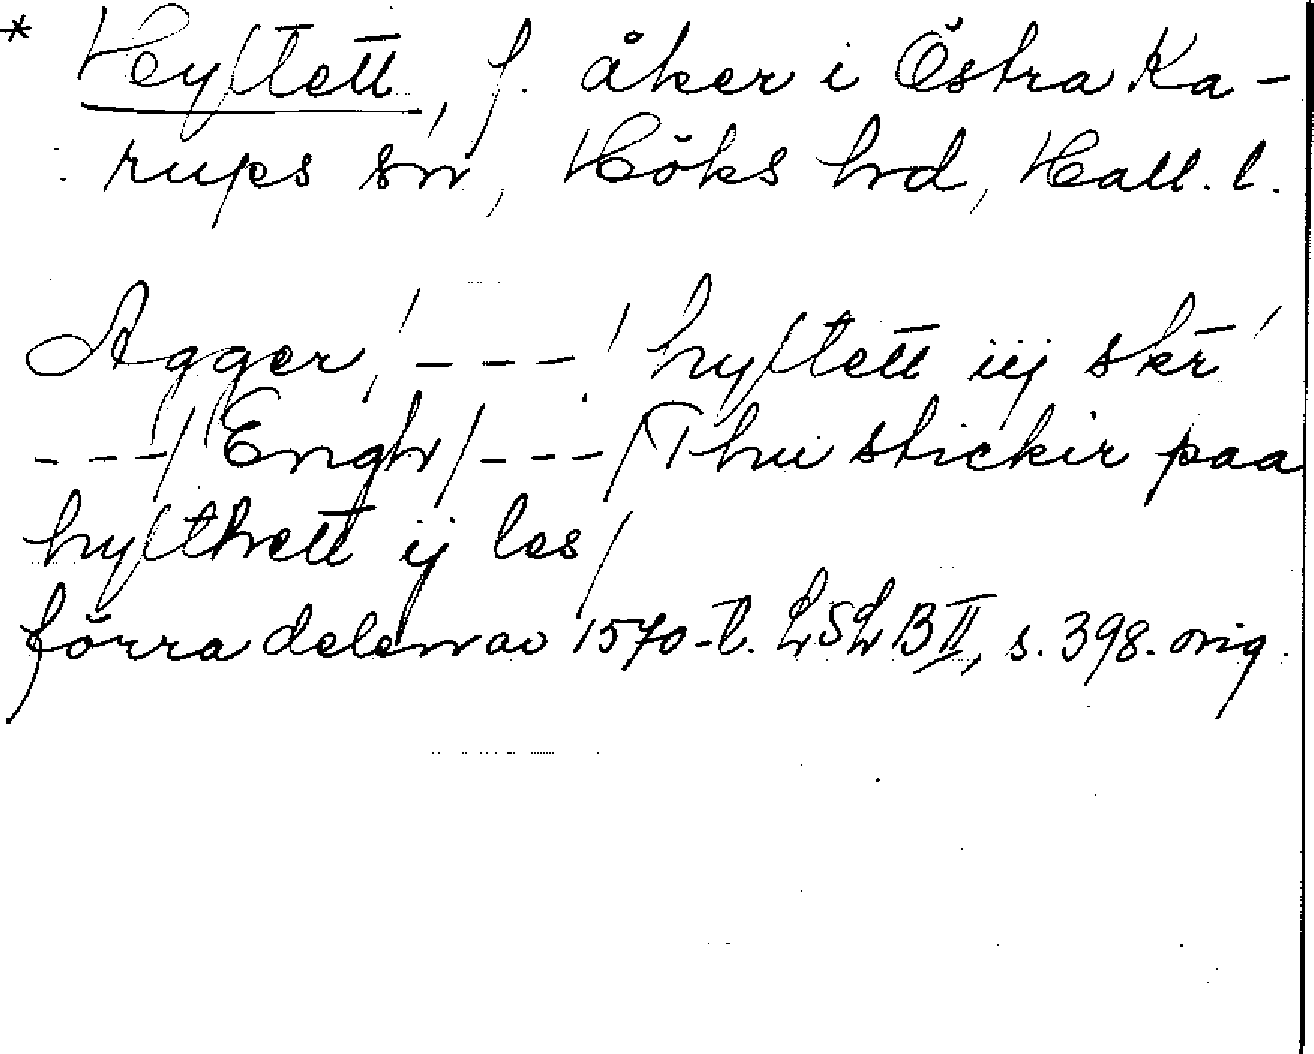 * Hyltett, f. åker i Östra Ka-
rups sn, Höks hd, Hall. l.
Agger / - - - / hyltett iij skr /
- - - / Engh / - - - / Thu stickir paa
hylthett ij les /
förra delen av 1570-t. LSLB II, s. 398. orig.